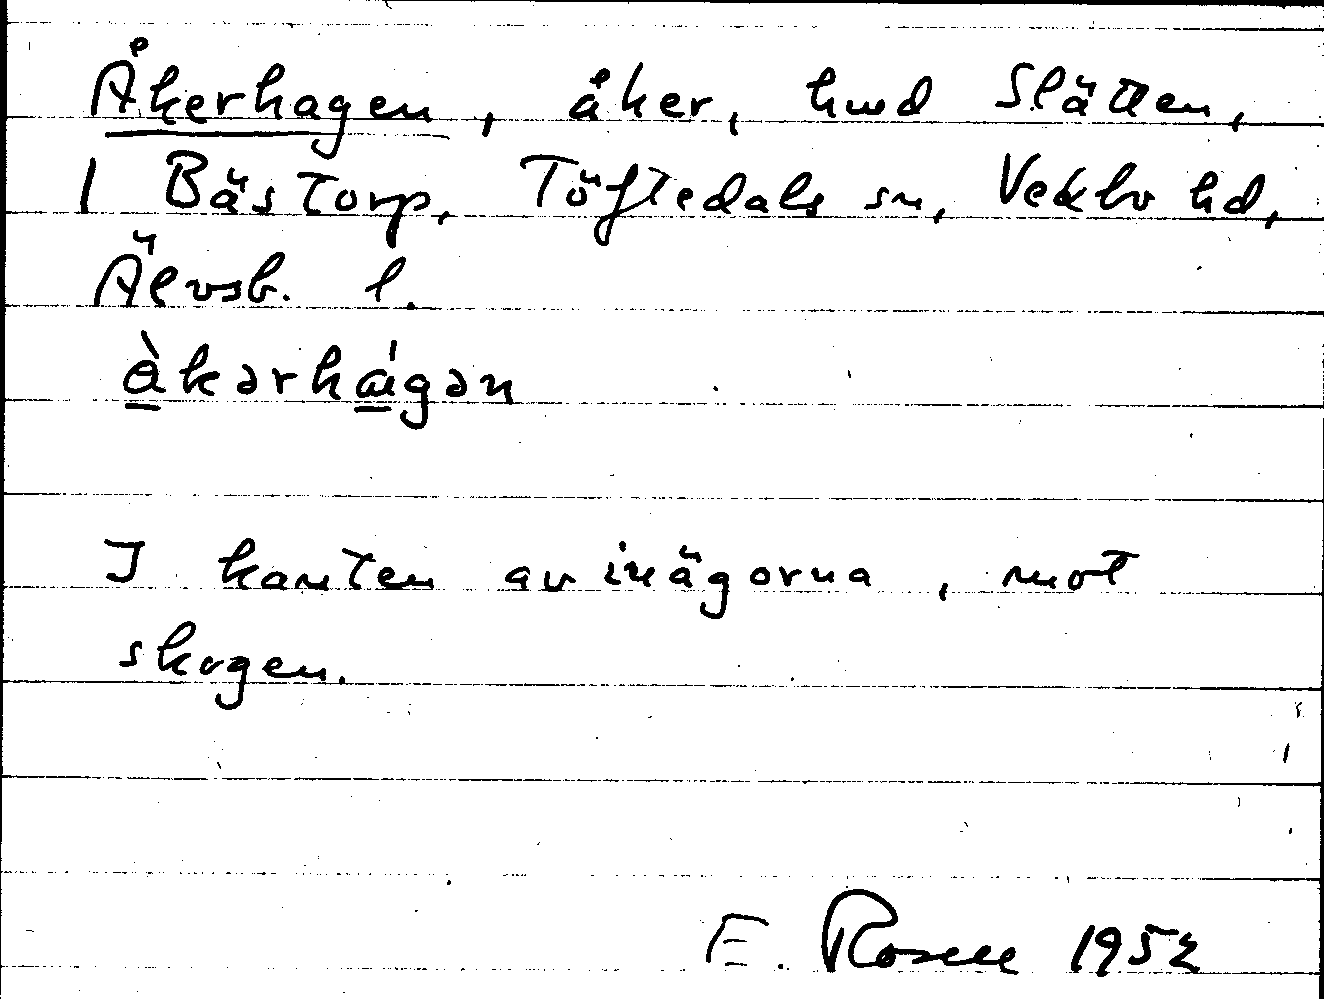 Åkerhagen, åker, hmd Slätten,
1 Bästorp, Töftedals sn, Vedbo hd,
Älvsb. l.
å̀kərhágən
I kanten av inägorna, mot
skogen.
E. Rosell 1952